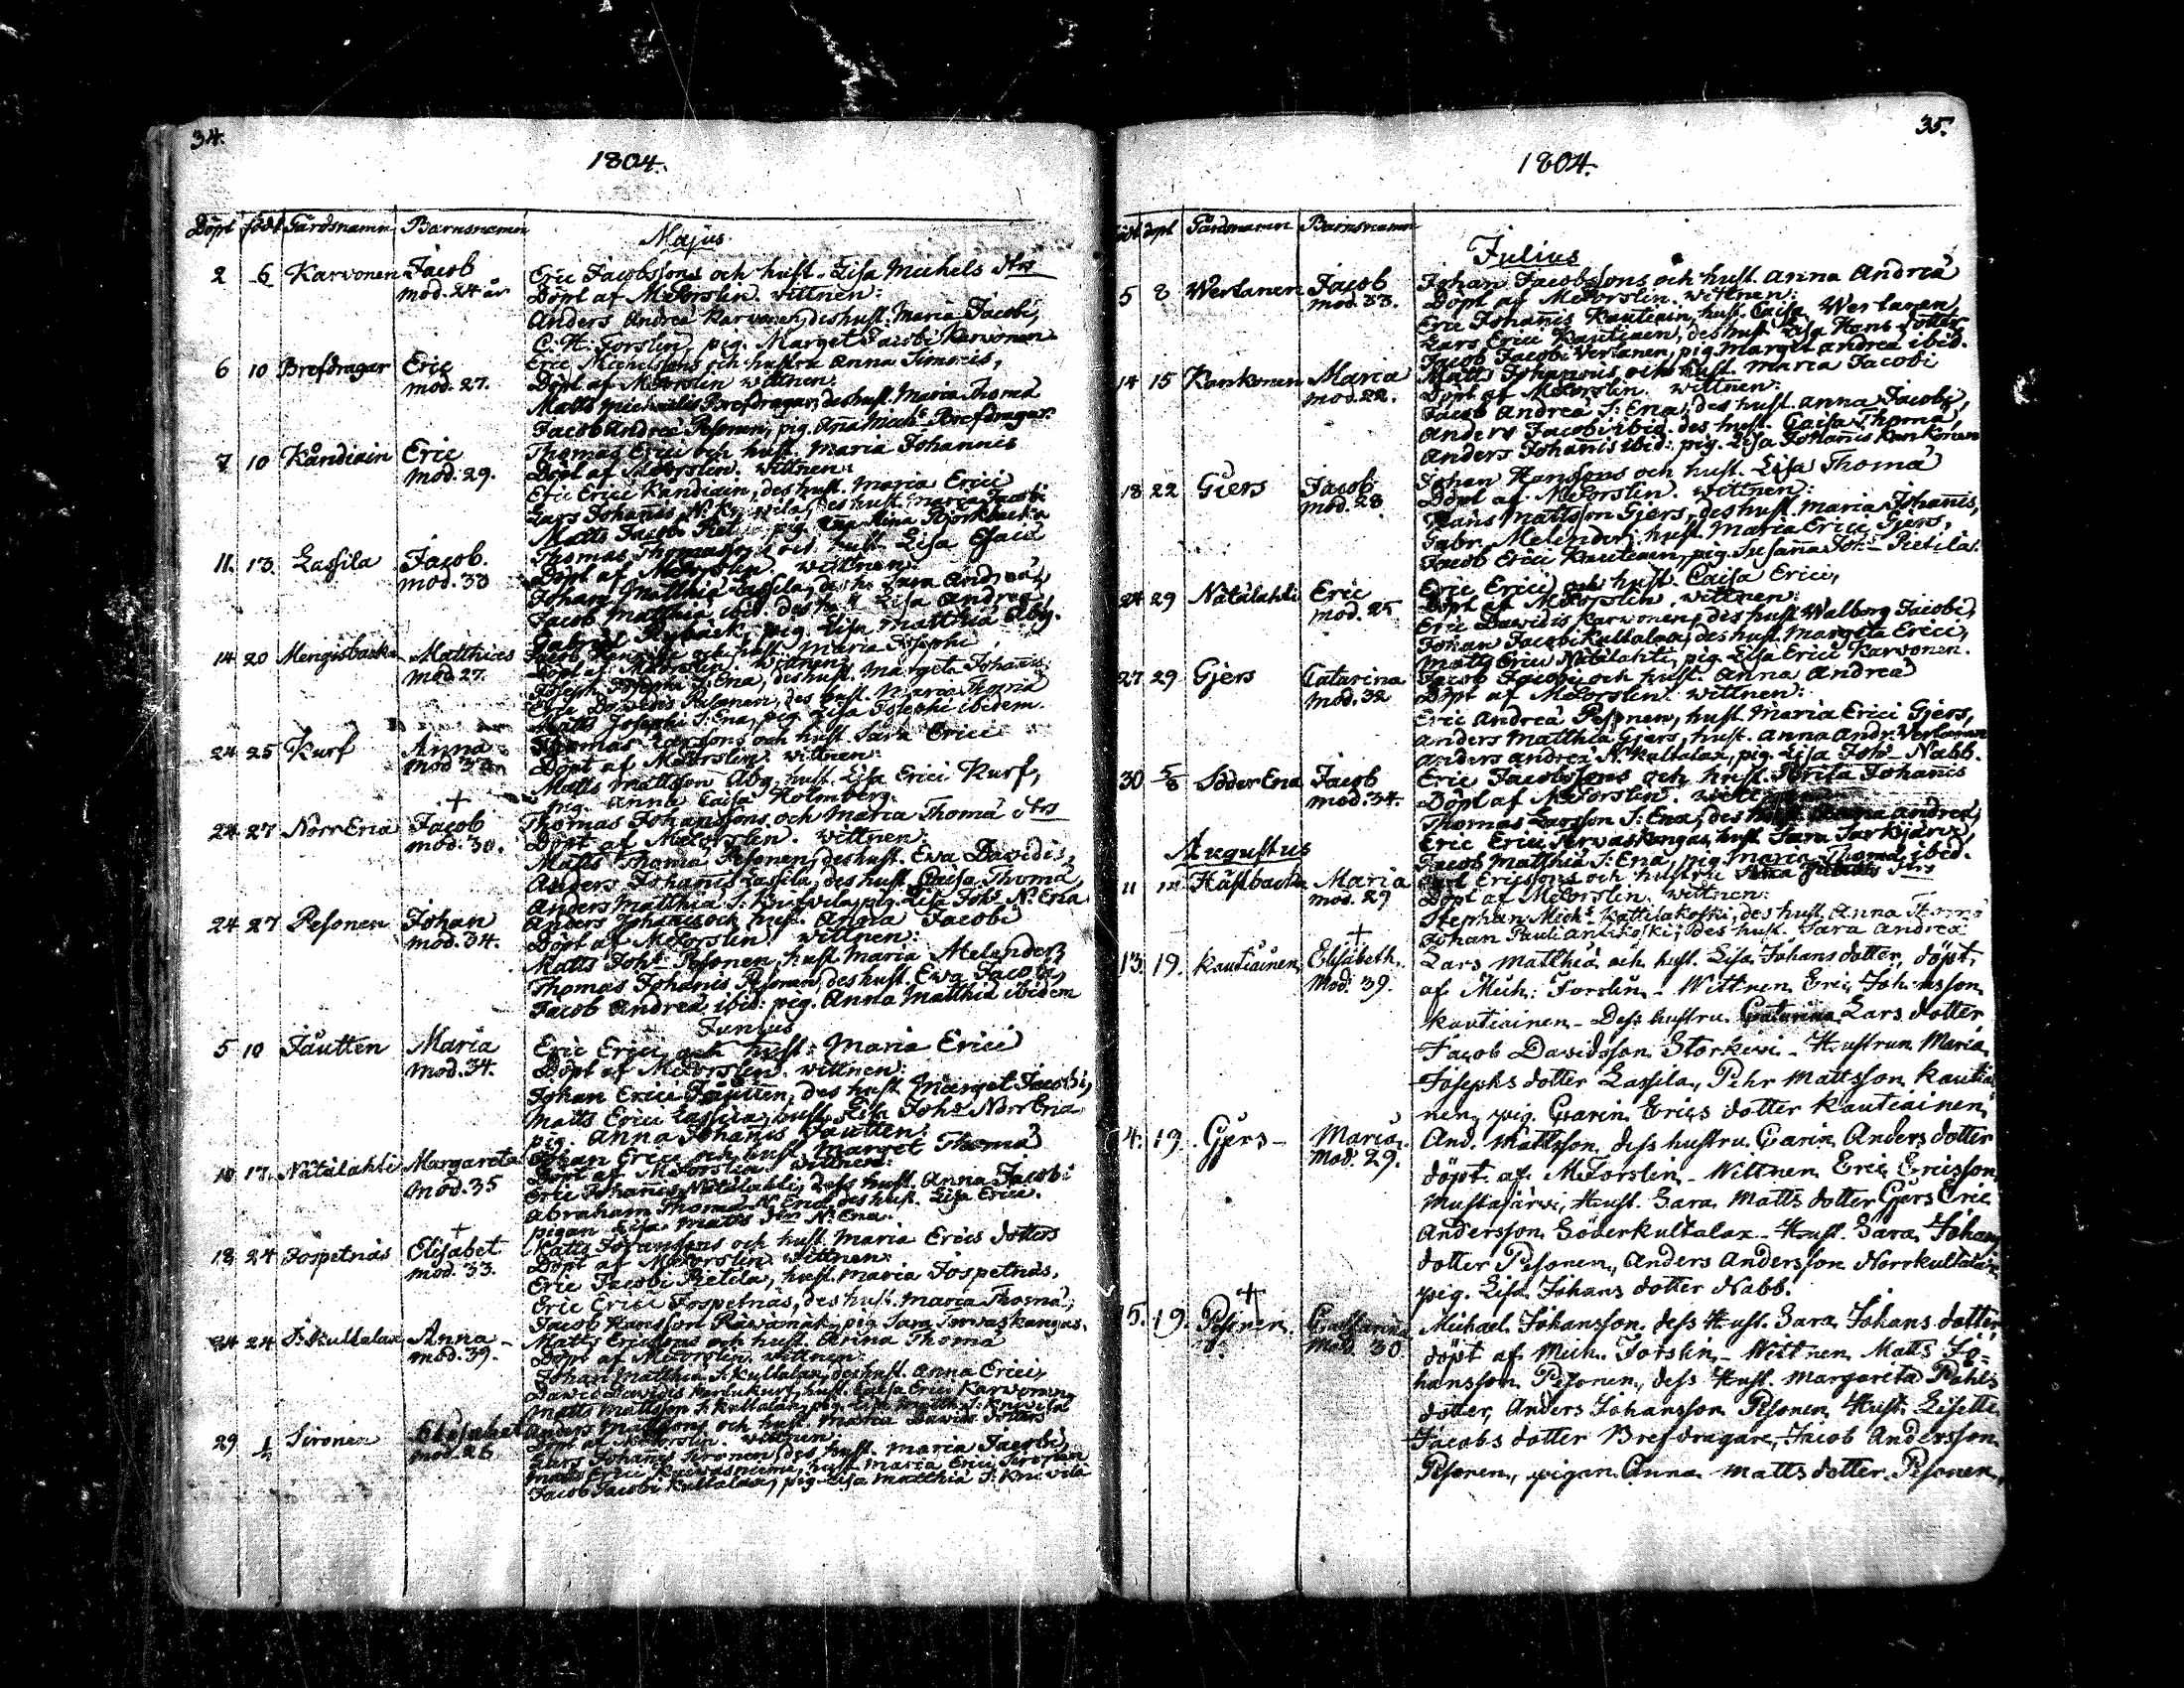 34.
1804.
Döpt födt Gårdsnamn Barnsnamn
Majus
2 6 Karvonen Jacob Eric Jacobssons och hust. Lisa Michels dtrs
mod. 24 år Döpt af M. Forslin. wittnen:
Anders Andreæ Karvonen, des hust. Maria Jacobi,
C. H. Forslin, pig. Marget Jacobi Karvonen
6 10 Brefdragar Eric Eric Michelssons och hustru Anna Simonis,
mod. 27. Döpt af M. Forslin wittnen:
Matts Michaelis Brefdragar, des hust. Maria Thomæ
Jacob Andreæ Pesonen, pig. Aña Mich: Brefdragar.
7 10 Kåndiain Eric Thomas Erici och hust. Maria Johannis
mod. 29. Döpt af M. Forslin. wittnen:
Eric Erici Kandiain, des hust. Maria Erici
Lars Johañis N. Knivila, des hust. Maria Jacobi
Matts Jacob. Piet pig. Björkbacka
11. 13 Lassila Jacob. Thomas Thomasson och hust. Lisa Esaiæ
mod. 33 Döpt af M. Forslin. wittnen:
Johan Matthiæ Lassila, des h. Sara Andreæ,
Jacob Matthiæ ibid. des hust Lisa Andreæ,
Gabriel Nybäck, pig. Lisa Matthiæ Abg.
14 20 Mengisbacka Matthias Jacob och hust. Maria Josephi
mod 27. Döpt af M. Forslin. wittnen:
Joseph Josephi S. Ena, des hust. Margeta Johañis
Eric Dawidis Pesonen, des hust. Maria Thomæ
Matts Josephi S. Ena, pig. Lisa Josephi ibidem.
24 25 Kurf Anna Thomas Larssons och hust. Sara Erici
mod Döpt af M. Forslin. wittnen:
Matts Mattsson Abg. hust. Lisa Erici Kurf,
pig. Anna Caisa Holmberg.
+
24 27 Norr Ena Jacob Thomas Johanssons och Maria Thomæ dtrs
mod. 30. Döpt af M. Forslin. wittnen:
Matts Thomæ Pesonen, des hust. Ewa Dawidis,
Anders Johañis Lassila, des hust. Caisa Thomæ,
Anders Matthiæ S. Knifvila, pig. Lisa Johs. N. Ena
24 27 Pesonen Johan Anders Johañis och hust. Anna Jacobi
mod. 34. Döpt af M. Forslin. wittnen:
Matts Johs. Pesonen, hust. Maria Melender,
Thomas Johañis Pesonen, des hust. Ewa Jacobi,
Jacob Andreæ ibid: pig. Anna Matthiæ ibidem
Junius
5 10 Jåutten Maria Eric Erici och hust. Maria Erici
mod. 34. Döpt af M. Forslin. wittnen:
Johan Erici Jåutten, des hust Marget Jacobi,
Matts Erici Lassila, hust. Lisa Johs. Norr Ena
pig. Anna Johañis Jautten.
10 17. Nätälahti Margareta Johan Erici och hust. Marget Thomæ
mod. 35 Döpt af M. Forslin. wittnen:
Eric Johañis Nätälahti, dess hust. Anna Jacobi
Abraham Thomæ N. Ena, des hust. Lisa Erici.
pigan Lisa Matts dtr N: Ena.
+
18 24 Jospetnäs Elisabet Matts Johanssons och hust. Maria Erics dotters
mod. 33. Döpt af M. Forslin. wittnen:
Eric Jacobi Pietila, hust. Maria Jospetnäs,
Eric Erici Jospetnäs, des hust. Maria Thomæ,
Jacob Hansson Räwämäk, pig. Sara Terwaskangas.
24 24 S. Kultalax Anna Matts Ericssons och hust. Anna Thomæ
mod. 39. Döpt af M. Forslin. wittnen:
Johan Matthiæ S. Kultalax, des hust. Anna Erici,
Dawid Dawidis hust. Caisa Erici Karwonen
Matts Mattsson S. Kultalax, pig. Lisa Matth. S. Knivila
29 Sironen Elisabet Anders Mattssons och hust. Maria Dawids dotters
mod. 26 Döpt af M. Forslin. wittnen:
Lars Johañis Sironen, des hust. Maria Jacobi,
Matts Erici hust. Maria Erici Sironen
Jacob Jacobi Kultalax, pig. Lisa Matthiæ S. Knivila
35.
1804.
födt döpt Gårdsnamn Barnsnamn
Julius
5 8 Wertanen Jacob Johan Jacobssons och hust. Anna Andreæ
mod. 33. Döpt af M. Forslin. wittnen:
Eric Johañis Kautiain, hust. Caisa Wertanen,
Lars Erici Kautiaen, des hust Lisa Hans dotter,
Jacob Jacobi Vertanen, pig. Marget Andreæ ibid.
14 15 Kankonen Maria Matts Johannis och hust. Maria Jacobi
mod. 22. Döpt af M. Forslin. wittnen:
Jacob Andreæ S: Ena, des hust. Anna Jacobi,
Anders Jacobi ibid. des hust. Caisa Thomæ,
Anders Johañis ibid: pig. Lisa Johañis Kankonen
18 22 Giers Jacob Johan Hanssons och hust. Lisa Thomæ
mod. 28 Döpt af M. Forslin. wittnen:
Hans Mattsson Gjers, des hust. Maria Johañis,
Gabr. Melender, hust. Maria Erici Gjers,
Jacob Erici Kautiaen, pig. Susaña Joh: Pietila.
24 29 Nätälahti Eric Eric Erici och hust. Caisa Erici,
mod. 25 Döpt af M. Forslin. wittnen:
Eric Dawidis Karwonen, des hust Walborg Jacobi,
Johan Jacobi Kultalax, des hust. Margeta Erici,
Matts Erici Nätälahti, pig. Lisa Erici Karvonen.
27 29 Gjers Catarina Jacob Jacobi och hust. Anna Andreæ
mod. 32 Döpt af M. Forslin. wittnen:
Eric Andreæ Pesonen, hust. Maria Erici Gjers,
Anders Matthiæ Gjers, hust. Anna Andr. Vertanen
Anders Andreæ N. Kultalax, pig. Lisa Johs. Nabb.
30 5/8 Söder Ena Jacob Eric Jacobssons och hust. Brita Johañis
mod. 34. Döpt af M. Forslin.
Thomas Larsson S: Ena, des hust. Anna Andreæ,
Eric Erici Terwaskangas, hust. Sara Särkijärvi,
Jacob Matthiæ S: Ena, pig. Maria Thomæ, ibid.
Augustus
11 12 Hästbacka Maria Ericssons och hustru
mod. 29 Döpt af M. Forslin. wittnen:
Stephan Mich: Kattilakoski, des hust. Anna Thomæ
Johan Pauli Antikoski, des hust. Sara Andreæ.
+
13. 19. Kautiainen, Elisabeth. Lars Matthiæ och hust. Lisa Johans dotter, döpt,
Mod. 39. af Mich: Forslin - Wittnen Eric Johansson
Kautiainen - Dess hustru Catarina Lars dotter
Jacob Dawidsson Storkivi - Hustrun Maria
Josephs dotter Lassila, Pehr Mattsson Kautiai
nen, pig. Carin Erics dotter Kautiainen.
4. 19. Gjers - Maria. And. Mattsson dess hustru Carin Anders dotter
Mod. 29. döpt. af M. Forslin - Wittnen Eric Ericsson
Mustajärvi, Hust. Sara Matts dotter Gjers Eric
Andersson Söderkultalax - Hust. Sara Johans
dotter Pesonen, Anders Andersson Norrkultalax
pig. Lisa Johans dotter Nabb.
+
15. 19. Pesonen. Catharina Michael Johansson dess Hust. Sara Johans dotter,
Mod. 30 döpt af Mich. Forslin - Wittnen Matts Jo-
hansson Pesonen, dess Hust. Margareta Påhls
dotter, Anders Johansson Pesonen Hust. Lisette
Jacobs dotter Brefdragare, Jacob Andersson
Pesonen, pigan Anna Matts dotter Pesonen.